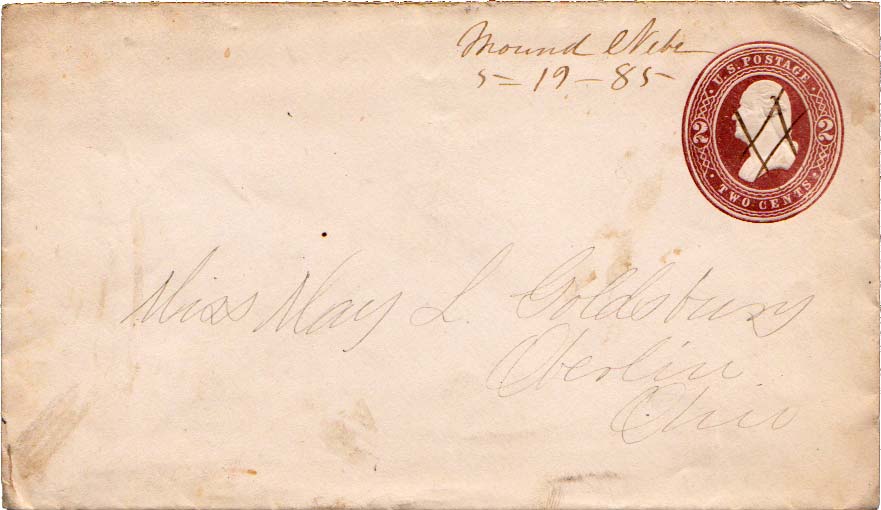 Mound Nebr
5-19-85
U.S. POSTAGE
2 2
TWO CENTS
Miss May L. Goldsbury
Oberlin
Ohio